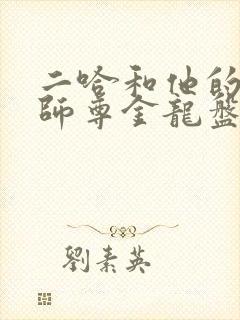 二哈和他的
師尊全龍盤
劉素英